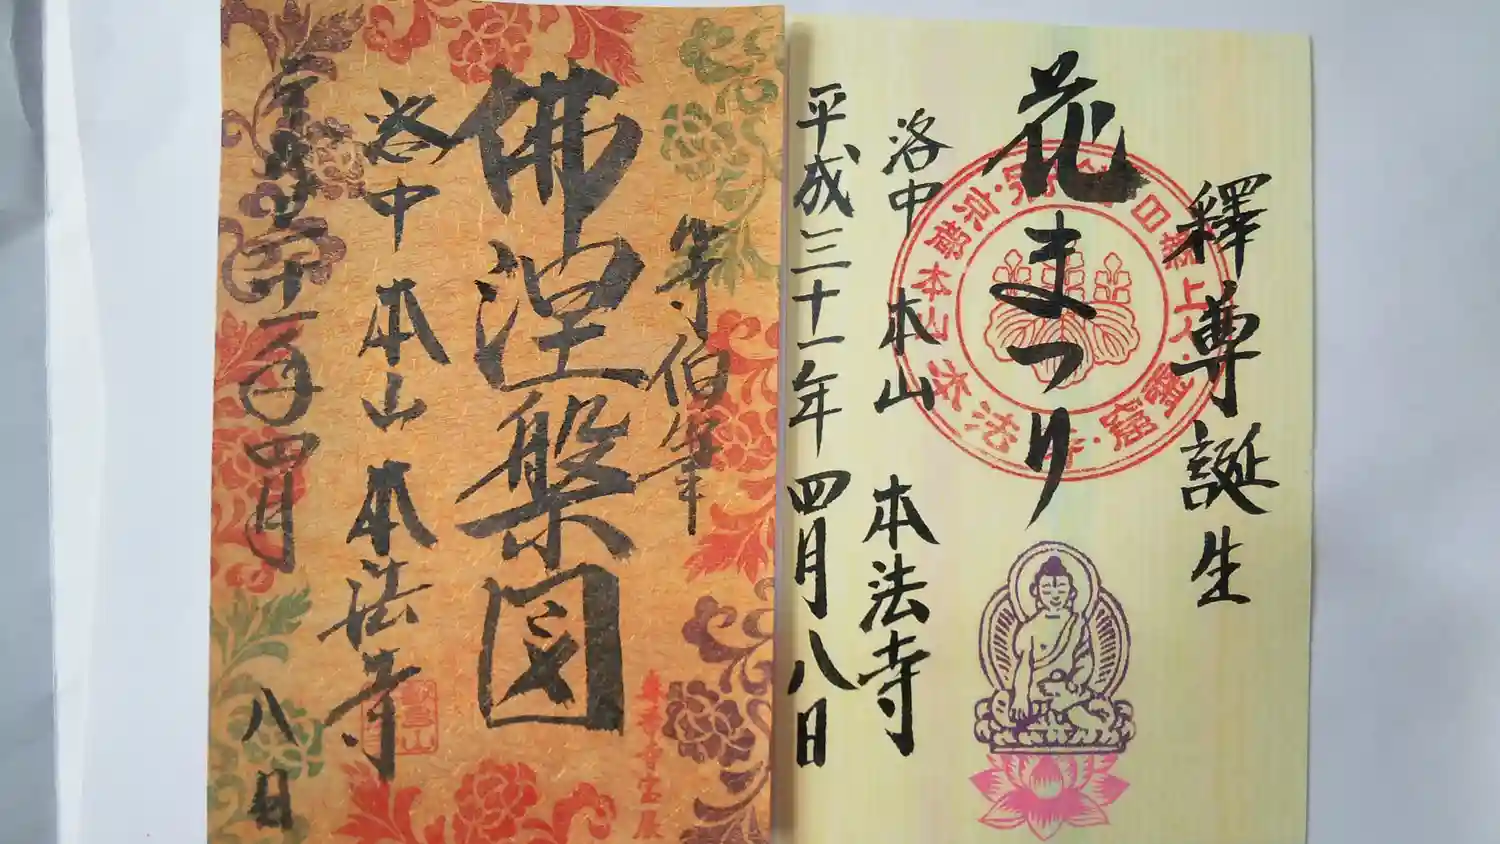 釋尊誕生
花まつり
洛中 本山 本法寺
平成三十一年四月八日
等伯筆
佛涅槃図
洛中 本山 本法寺
平成三十一年四月八日